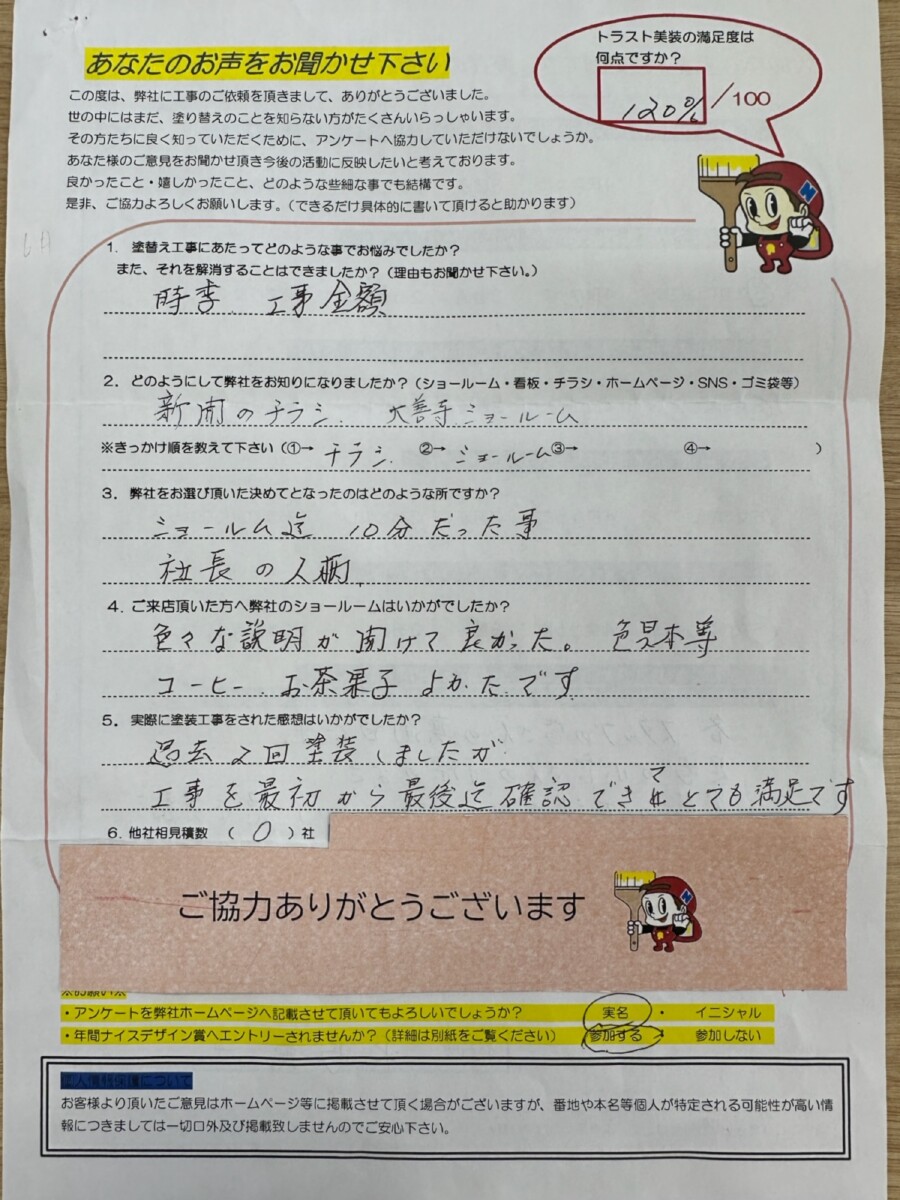 あなたのお声をお聞かせ下さい
トラスト美装の満足度は
何点ですか？
120% /100
この度は、弊社に工事のご依頼を頂きまして、ありがとうございました。
世の中にはまだ、塗り替えのことを知らない方がたくさんいらっしゃいます。
その方たちに良く知っていただくために、アンケートへ協力していただけないでしょうか。
あなた様のご意見をお聞かせ頂き今後の活動に反映したいと考えております。
良かったこと・嬉しかったこと、どのような些細な事でも結構です。
是非、ご協力よろしくお願いします。（できるだけ具体的に書いて頂けると助かります）
1. 塗替え工事にあたってどのような事でお悩みでしたか？
また、それを解消することはできましたか？（理由もお聞かせ下さい。）
時季、工事金額
2. どのようにして弊社をお知りになりましたか？（ショールーム・看板・チラシ・ホームページ・SNS・ゴミ袋等）
新聞のチラシ、大善寺ショールーム
※きっかけ順を教えて下さい（①→ チラシ ②→ ショールーム ③→ ④→ ）
3. 弊社をお選び頂いた決めてとなったのはどのような所ですか？
ショールーム迄 10分だった事
社長の人柄、
4. ご来店頂いた方へ弊社のショールームはいかがでしたか？
色々な説明が聞けて良かった。色見本等
コーヒー、お茶菓子よかったです
5. 実際に塗装工事をされた感想はいかがでしたか？
過去2回塗装しましたが
工事を最初から最後迄確認できてとても満足です
6. 他社相見積数 （ 0 ）社
ご協力ありがとうございます
※お願い※
・アンケートを弊社ホームページへ記載させて頂いてもよろしいでしょうか？ 実名 ・ イニシャル
・年間ナイスデザイン賞へエントリーされませんか？（詳細は別紙をご覧ください） 参加する ・ 参加しない
個人情報保護について
お客様より頂いたご意見はホームページ等に掲載させて頂く場合がございますが、番地や本名等個人が特定される可能性が高い情
報につきましては一切口外及び掲載致しませんのでご安心下さい。